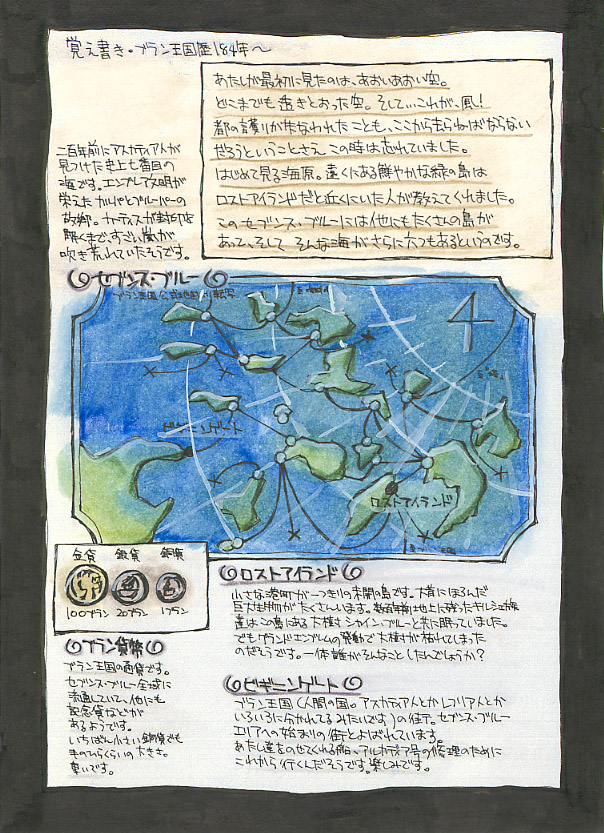 覚え書き・ブラン王国歴184年〜
あたしが最初に見たのは、あおいあおい空。
どこまでも透きとおった空。そして…これが、風!
都の護りが失なわれたことも、ここから去らねばならない
だろうということさえ この時は忘れていました。
はじめて見る海原。遠くにある鮮やかな緑の島は
ロストアイランドだと近くにいた人が教えてくれました。
このセブンス・ブルーには他にもたくさんの島が
あって、そして そんな海がさらに六つもあるというのです。
二百年前にアスカディア人が
見つけた史上七番目の
海です。エンブレム文明が
栄えた
故郷。 が封印を
解くまで、すごい嵐が
吹き荒れていたそうです。
セブンス・ブルー
ブラン王国公式地図より転写
4
ビギニンゲート
ロストアイランド
金貨 銀貨 銅貨
100ブラン 20ブラン 1ブラン
ブラン貨幣
ブラン王国の通貨です。
セブンス・ブルー全域に
流通していて、他にも
記念貨などが
あるようです。
いちばん小さい銅貨でも
手のひらくらいの大きさ。
重いです。
ロストアイランド
小さな港町が一つきりの未開の島です。大昔にほろんだ
巨大生物がたくさんいます。数百年前地上に残った
達はこの島にある大樹シャイン・ブルーと共に眠っていました。
でもグランドエンブレムの発動で大樹が枯れてしまった
のだそうです。一体誰がそんなことしたんでしょうか?
ビギニンゲート
ブラン王国(人間の国。アスカディア人とかレフリア人とか
いろいろに分かれてるみたいです)の街。セブンス・ブルー
エリアへの始まりの街とよばれています。
あたし達をのせてくれる船、アルカディア号の修理のために
これから行くんだそうです。楽しみです。